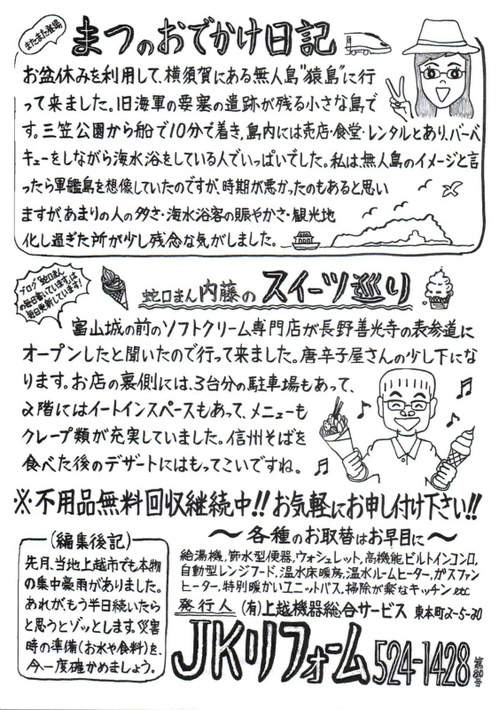 またまた登場
まつのおでかけ日記
お盆休みを利用して、横須賀にある無人島"猿島"に行
って来ました。旧海軍の要塞の遺跡が残る小さな島で
す。三笠公園から船で10分で着き、島内には売店・食堂・レンタルとあり、バーベ
キューをしながら海水浴をしている人でいっぱいでした。私は、無人島のイメージと言
ったら軍艦島を想像していたのですが、時期が悪かったのもあると思い
ますが、あまりの人の多さ・海水浴客の賑やかさ・観光地
化し過ぎた所が少し残念な気がしました。
ブログ「蛇口まん
の毎日書いています」は
毎日更新しています!
蛇口まん内藤のスイーツ巡り
富山城の前のソフトクリーム専門店が長野善光寺の表参道に
オープンしたと聞いたので行って来ました。唐辛子屋さんの少し下にな
ります。お店の裏側には、3台分の駐車場もあって、
2階にはイートインスペースもあって、メニューも
クレープ類が充実していました。信州そばを
食べた後のデザートにはもってこいですね。
※不用品無料回収継続中!!お気軽にお申し付け下さい!!
(編集後記)
先月、当地上越市でも本物
の集中豪雨がありました。
あれがもう半日続いたら
と思うとゾッとします。災害
時の準備(お水や食料)を、
今一度確かめましょう。
〜各種のお取替はお早目に〜
給湯機,節水型便器,ウォシュレット,高機能ビルトインコンロ,
自動型レンジフード,温水床暖房,温水ルームヒーター,ガスファン
ヒーター,特別暖かいユニットバス,掃除が楽なキッチン etc
発行人 (有)上越機器総合サービス 東本町2-5-20
JKリフォーム 524-1428 第80号